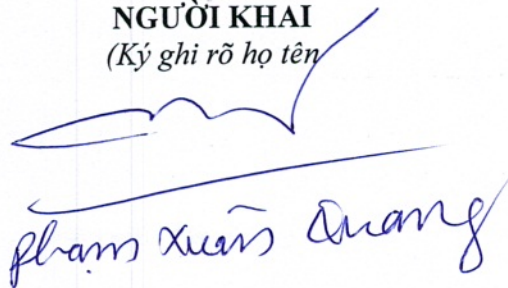 NGƯỜI KHAI
(Ký ghi rõ họ tên
Phạm Xuân Quang